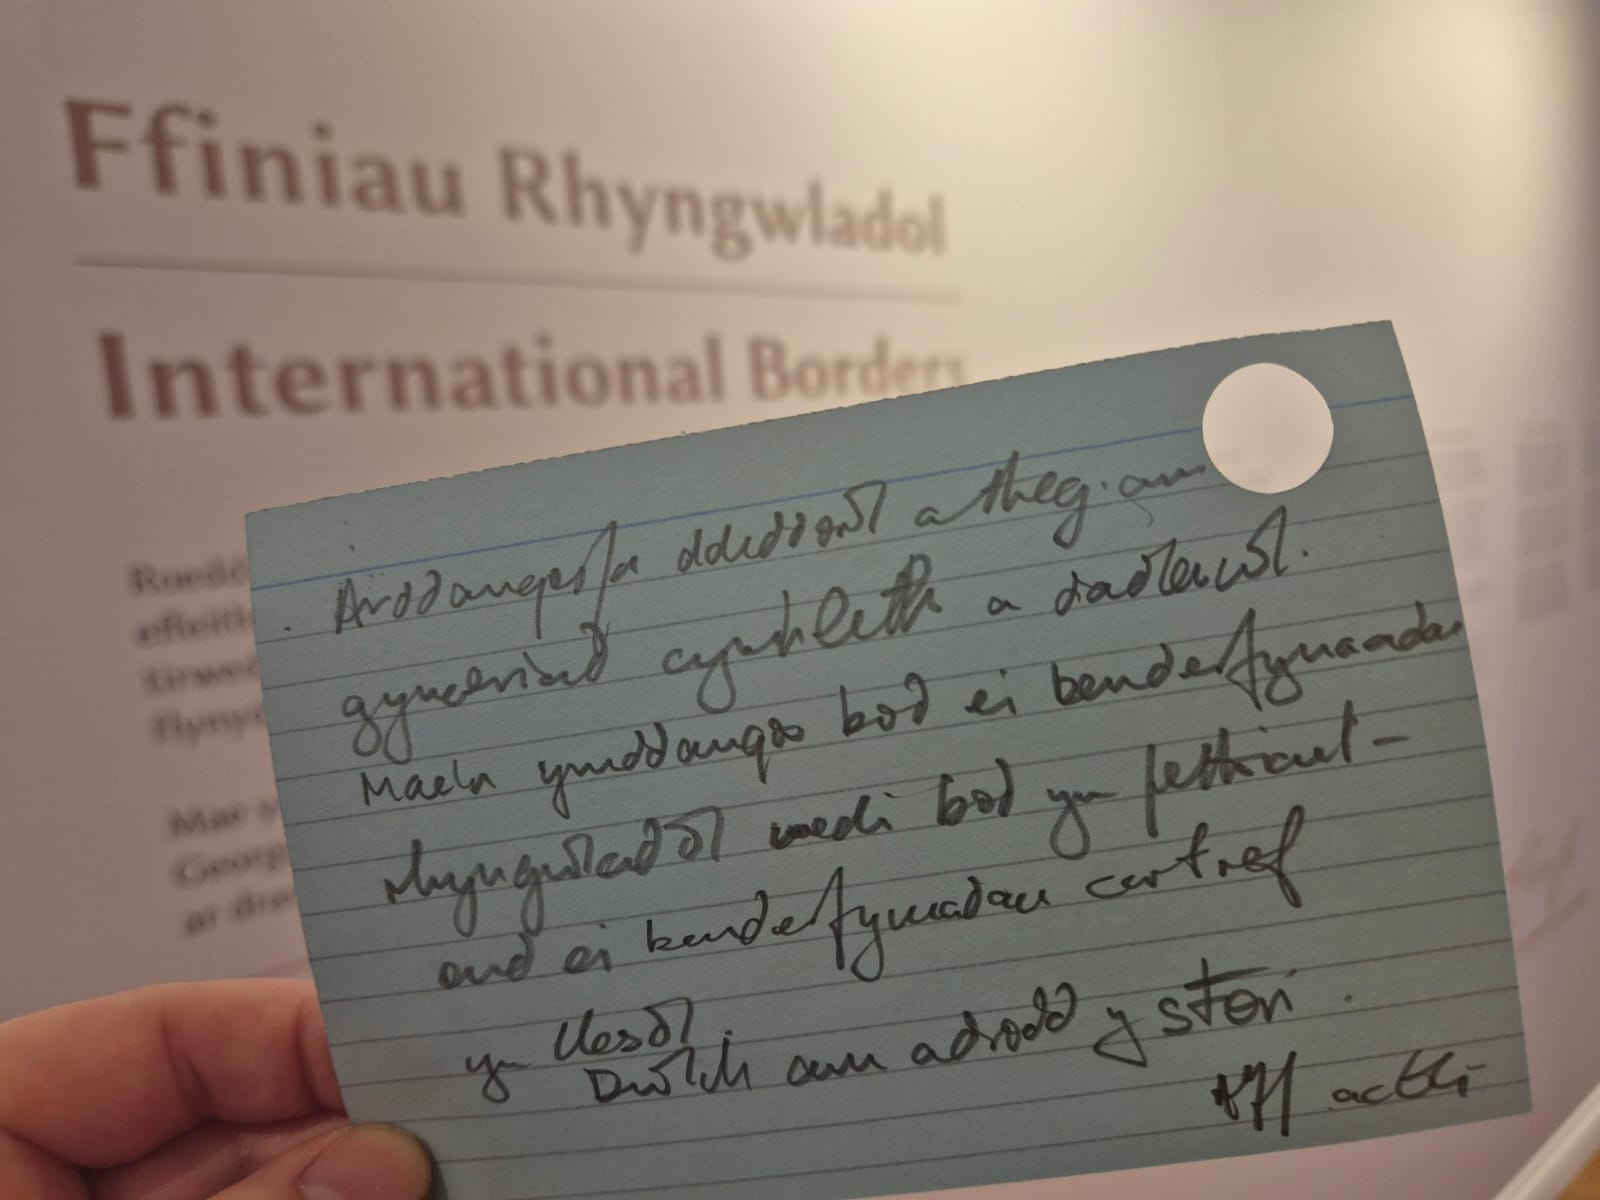 Ffiniau Rhyngwladol
International Borders
Roedd
effeith
tirwed
flynyd
Mae y
Georg
ar dra
Arddangosfa ddeddfol a theg. am
gymeriad cymhleth a dadleuol.
Mae'n ymddangos bod ei benderfynaadau
rhyngwladol wedi bod yn fethiant -
ond ei benderfynadau cartref
yn llesol.
Diolch am adrodd y stori.